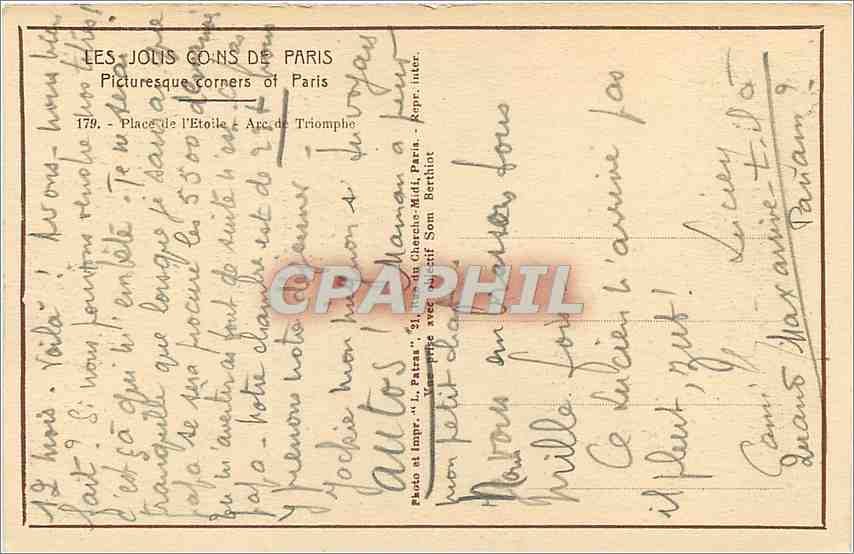 LES JOLIS COINS DE PARIS
Picturesque corners of Paris
179. - Place de l'Etoile - Arc de Triomphe
Photo et Impr. "L. Patras", 21, Rue du Cherche-Midi, Paris. - Repr. inter.
Vue prise avec objectif Som Berthiot
CPARHIL
12 mois. Voilà! Avons-nous bien
fait? Si nous pouvions vendre nos titres!
c'est ça qui m'embête. Je ne serai
tranquille que lorsque je saurai que
papa se sera procuré les 5500
qu'il m'avertira tout de suite n'est-ce pas
papa - Notre chambre est de 22 F. Nous
y prenons notre déjeuner -
Jackie mon mignon si tu voyais
autos! Maman a peur
mon petit chat
Nous vous embrassons tous
mille fois
Ce Lucien n'arrive pas
il pleut, zut!
Lucien
Quand Max arrive-t-il à
Panam?